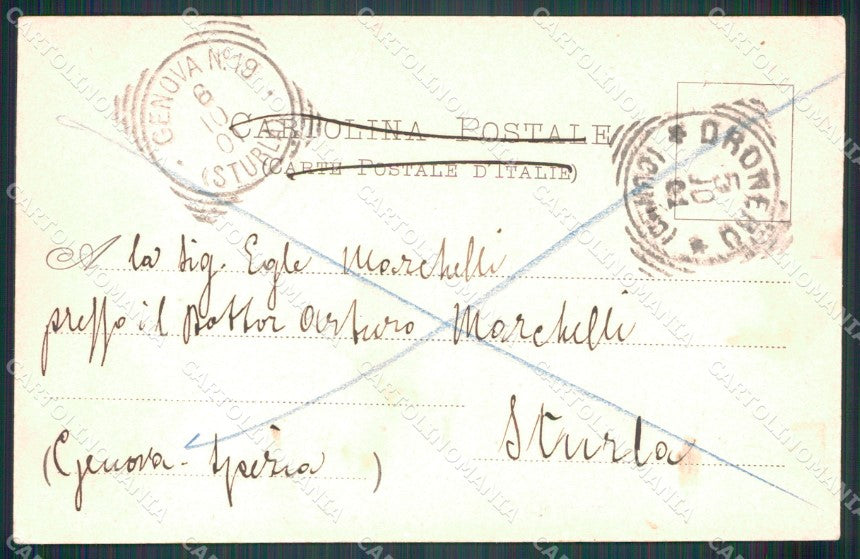 GENOVA N.º 19
6
10
01
(STURLA)
CARTOLINA POSTALE
(CARTE POSTALE D'ITALIE)
* DRONERO *
(CUNEO)
5
10
01
A la Sig. Egle Marchelli
presso il Dottor Arturo Marchelli
Sturla
(Genova - Spezia)
CARTOLINOMANIA